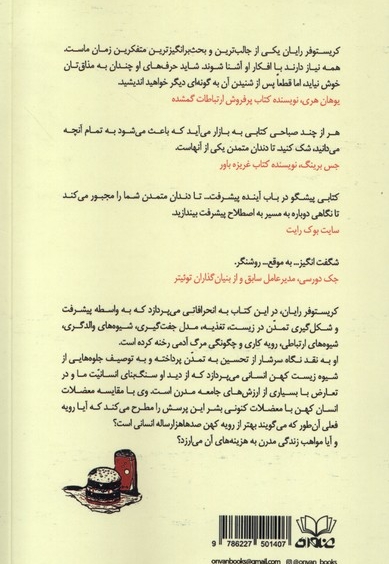 کریستوفر رایان یکی از جالب‌ترین و بحث‌برانگیزترین متفکرین زمان ماست.
همه نیاز دارند با افکار او آشنا شوند. شاید حرف‌های او چندان به مذاق‌تان
خوش نیاید، اما قطعاً پس از شنیدن آن به گونه‌ای دیگر خواهید اندیشید.
یوهان هری، نویسنده کتاب پرفروش ارتباطات گمشده
هر از چند صباحی کتابی به بازار می‌آید که باعث می‌شود به تمام آنچه
می‌دانید، شک کنید. تا دندان متمدن یکی از آنهاست.
جس برینگ، نویسنده کتاب غریزه باور
کتابی پیشگو در باب آینده پیشرفت... تا دندان متمدن شما را مجبور می‌کند
تا نگاهی دوباره به مسیر به اصطلاح پیشرفت بیندازید.
سایت بوک رایت
شگفت انگیز... به موقع... روشنگر.
جک دورسی، مدیرعامل سابق و از بنیان‌گذاران توئیتر
کریستوفر رایان، در این کتاب به انحرافاتی می‌پردازد که به واسطه پیشرفت
و شکل‌گیری تمدّن در زیست، تغذیه، مدل جفت‌گیری، شیوه‌های والدگری،
شیوه‌های ارتباطی، رویه کاری و چگونگی مرگ آدمی رخنه کرده است.
او به نقد نگاه سرشار از تحسین به تمدّن پرداخته و به توصیف جلوه‌هایی از
شیوه زیست کهن انسانی می‌پردازد که از دید او سنگ‌بنای انسانیّت ما و در
تعارض با بسیاری از ارزش‌های جامعه مدرن است. وی با مقایسه معضلات
انسان کهن با معضلات کنونی بشر این پرسش را مطرح می‌کند که آیا رویه
فعلی آن‌طور که می‌گویند بهتر از رویه کهن صدهاهزارساله انسانی است؟
و آیا مواهب زندگی مدرن به هزینه‌های آن می‌ارزد؟
9 786227 501407
onvanbooks@gmail.com @onvan_books